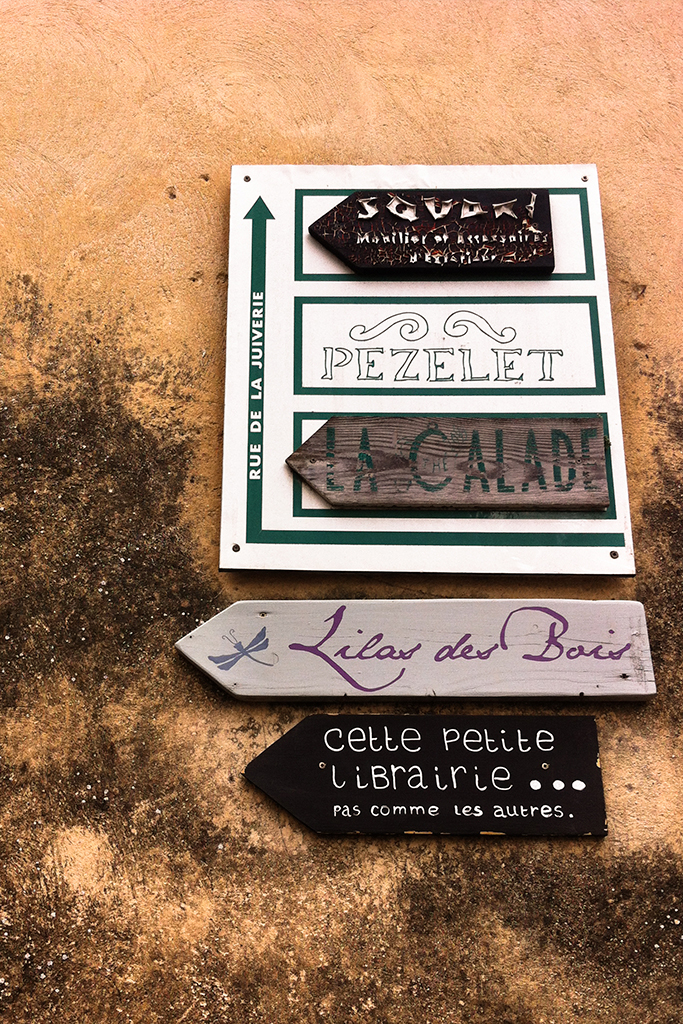 RUE DE LA JUIVERIE
Mobilier et accessoires
PEZELET
LA CALADE
Lilas des Bois
cette petite
librairie...
pas comme les autres.